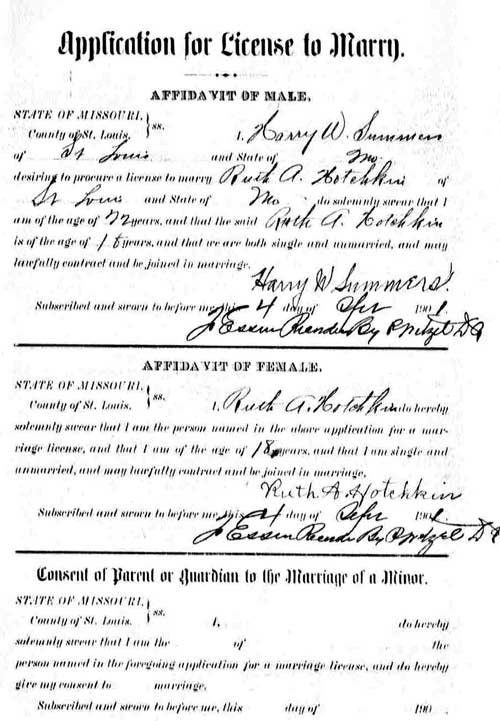 Application for License to Marry.
AFFIDAVIT OF MALE.
STATE OF MISSOURI,
County of St. Louis. } ss. I, Harry W. Summers
of St Louis and State of Mo
desiring to procure a license to marry Ruth A. Hotchkin of
St Louis and State of Mo do solemnly swear that I
am of the age of 22 years, and that the said Ruth A. Hotchkin
is of the age of 18 years, and that we are both single and unmarried, and may
lawfully contract and be joined in marriage.
Harry W Summers.
Subscribed and sworn to before me, this 4 day of 1901.
Essen Recorder By D R
AFFIDAVIT OF FEMALE.
STATE OF MISSOURI,
County of St. Louis. } ss. I, Ruth A. Hotchkin do hereby
solemnly swear that I am the person named in the above application for a mar-
riage license, and that I am of the age of 18 years, and that I am single and
unmarried, and may lawfully contract and be joined in marriage.
Ruth A. Hotchkin
Subscribed and sworn to before me, this 4 day of 1901.
Essen Recorder By D R
Consent of Parent or Guardian to the Marriage of a Minor.
STATE OF MISSOURI,
County of St. Louis. } ss. I, do hereby
solemnly swear that I am the of the
person named in the foregoing application for a marriage license, and do hereby
give my consent to marriage.
Subscribed and sworn to before me, this day of 190